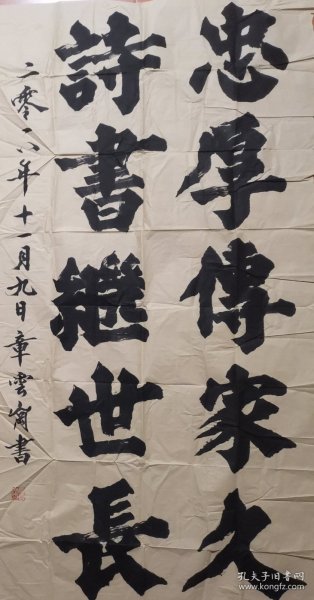 忠厚傳家久
詩書繼世長
二零一八年十一月九日章雲甯書
孔夫子旧书网
www.kongfz.com